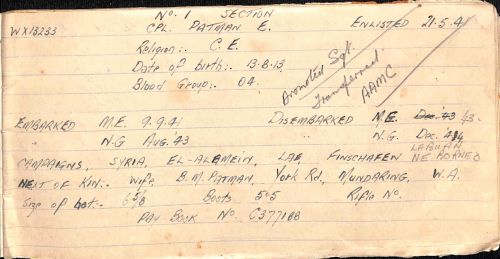 No. 1 SECTION
WX13233 CPL. PATMAN E. ENLISTED 21.5.41
Religion:. C. E.
Date of birth:. 13.8.13.
Blood Group:. O4.
Promoted Sgt.
Transferred
AAMC
EMBARKED M.E. 9.9.41 DISEMBARKED M.E. Dec. '43 43.
" N.G AUG. '43 " N.G. Dec. 44
LABUAN
CAMPAIGNS, SYRIA, EL-ALAMEIN, LAE, FINSCHAFEN NE BORNEO
NEXT OF KIN:. Wife, B.M. PATMAN, York Rd, MUNDARING, W.A.
Size of hat:. 6 5/8 Boots 5.5 Rifle No.
PAY BOOK No. C377188